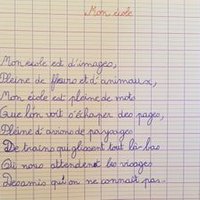 Mon école
Mon école est d'images,
Pleine de fleurs et d'animaux,
Mon école est pleine de mots
Que l'on voit s'échaper des pages,
Pleine d'avions de paysages
De trains qui glissent tout là-bas
Où nous attendent les visages
Des amis qu'on ne connaît pas.